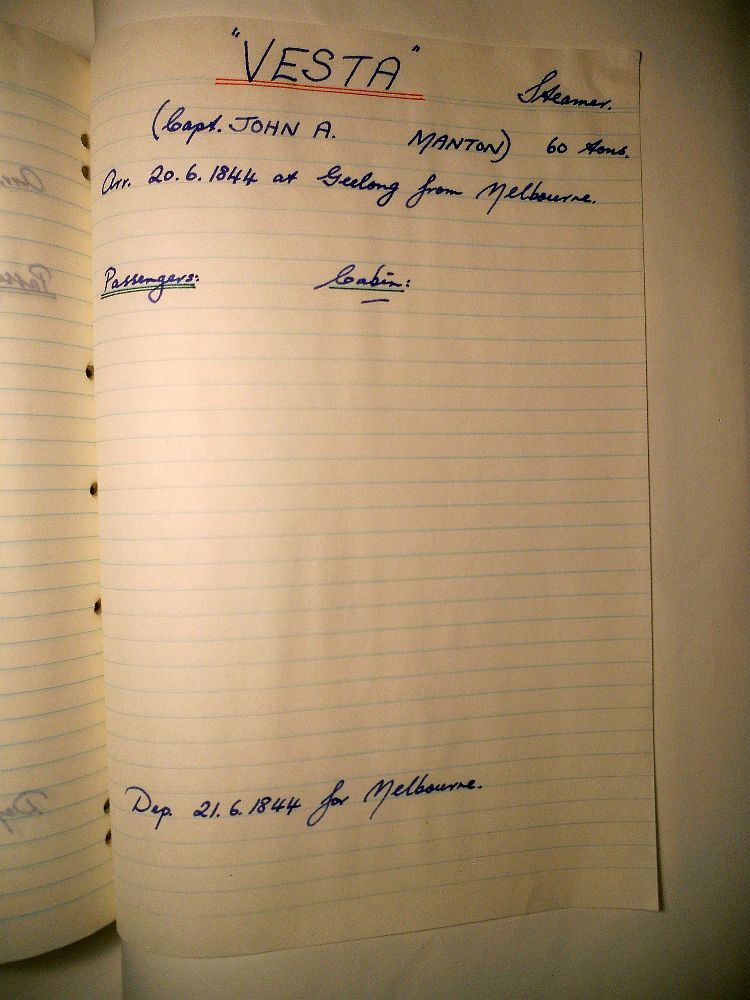 "VESTA" Steamer.
(Capt. JOHN A. MANTON) 60 tons.
Arr. 20.6.1844 at Geelong from Melbourne.
Passengers: Cabin:
Dep. 21.6.1844 for Melbourne.